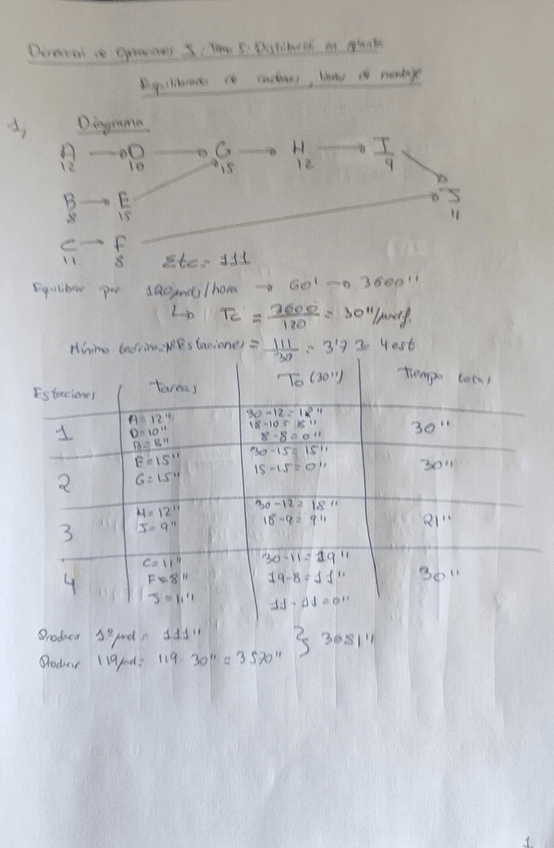 Dirección de Operaciones I: Tema 5: Distribución en planta
Equilibrado de cadenas, líneas de montaje
1, Diagrama
A → D → G → H → I
12 10 15 12 9
B → E J
8 15 11
C → F
11 8 Σtc = 111
Equilibrar por 120 unids/hora → 60' → 3600''
↳ Tc = 3600/120 = 30''/unid.
Mínimo teórico Nº Estaciones = 111/30 = 3'7 ≃ 4 est
Estaciones Tareas To (30'') Tiempo total
1 A = 12'' 30-12 = 18'' 30''
D = 10'' 18-10 = 8''
B = 8'' 8-8 = 0''
2 E = 15'' 30-15 = 15'' 30''
G = 15'' 15-15 = 0''
3 H = 12'' 30-12 = 18'' 21''
I = 9'' 18-9 = 9''
4 C = 11'' 30-11 = 19'' 30''
F = 8'' 19-8 = 11''
J = 11'' 11-11 = 0''
Producir 1ª und = 111'' } 3681''
Producir 119 und: 119 · 30'' = 3570''
1